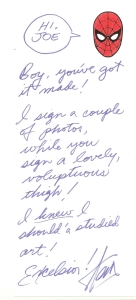 HI,
JOE
Boy, you've got
it made!
I sign a couple
of photos,
while you
sign a lovely,
voluptuous
thigh!
I knew I
should'a studied
art!
Excelsior!
Stan